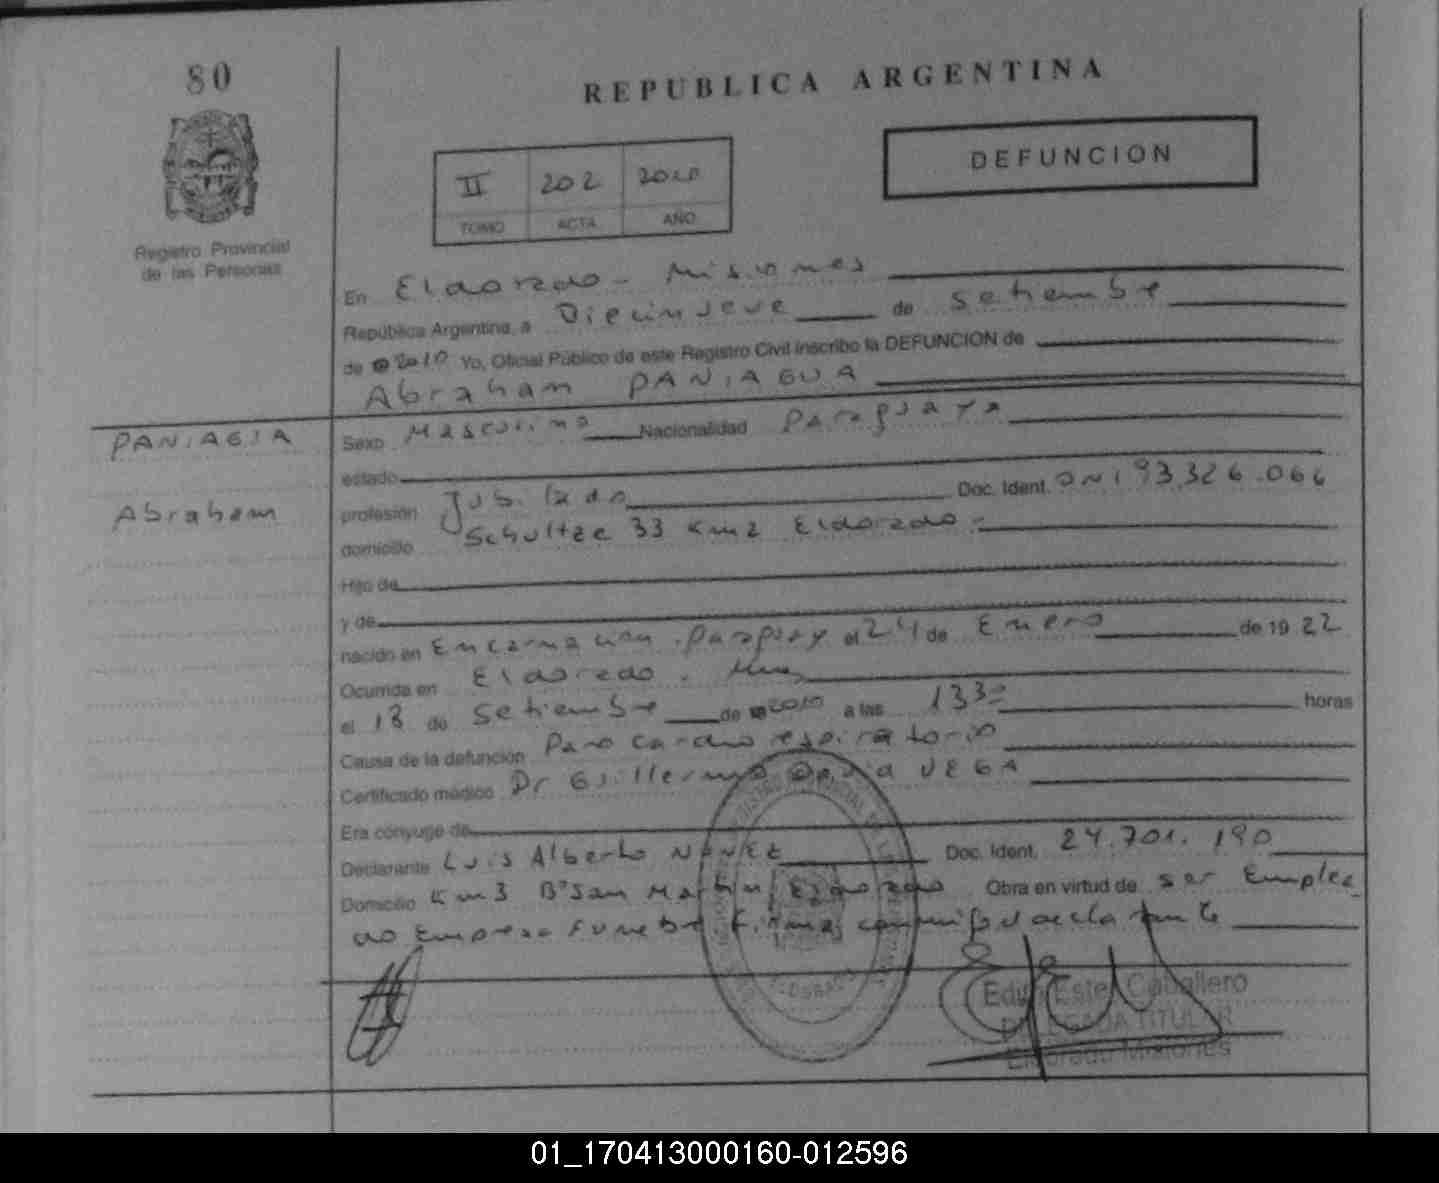 80
REPUBLICA ARGENTINA
DEFUNCION
II 202 2010
TOMO ACTA AÑO
Registro Provincial
de las Personas
En Eldorado - Misiones
República Argentina, a Diecinueve de Setiembre
de 2010 Yo, Oficial Público de este Registro Civil inscribo la DEFUNCION de
Abraham PANIAGUA
PANIAGUA
Abraham
Sexo Masculino Nacionalidad Paraguaya
estado
profesión Jubilado Doc. Ident. DNI 93.326.066
domicilio Schultze 33 Km 2 Eldorado -
Hijo de
y de
nacido en Encarnación. Paraguay el 24 de Enero de 1922
Ocurrida en Eldorado. Mnes
el 18 de Setiembre de 2010 a las 1330 horas
Causa de la defunción Paro cardio respiratorio
Certificado médico Dr Guillermo VEGA
Era cónyuge de
Declarante Luis Alberto NUÑEZ Doc. Ident. 24.701.190
Domicilio Km 3 B° San Martin Eldorado Obra en virtud de ser Emplea
do Empresa Funebre. Firma conmigo declarante
Edith Estel Caballero
DELEGADA TITULAR
Eldorado Misiones
01_170413000160-012596